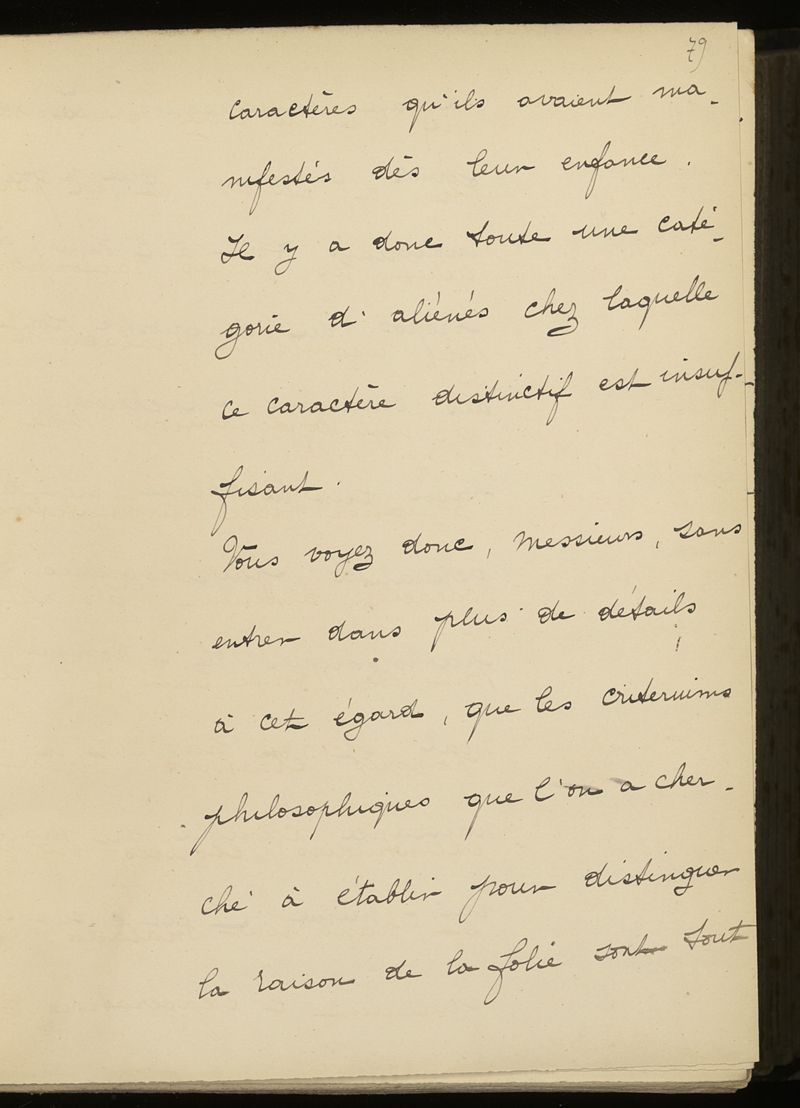 79
caractères qu'ils avaient ma-
nifestés dès leur enfance.
Il y a donc toute une caté-
gorie d'aliénés chez laquelle
ce caractère distinctif est insuf-
fisant.
Vous voyez donc, messieurs, sans
entrer dans plus de détails
à cet égard, que les criteriums
philosophiques que l'on a cher-
ché à établir pour distinguer
la raison de la folie sont tout